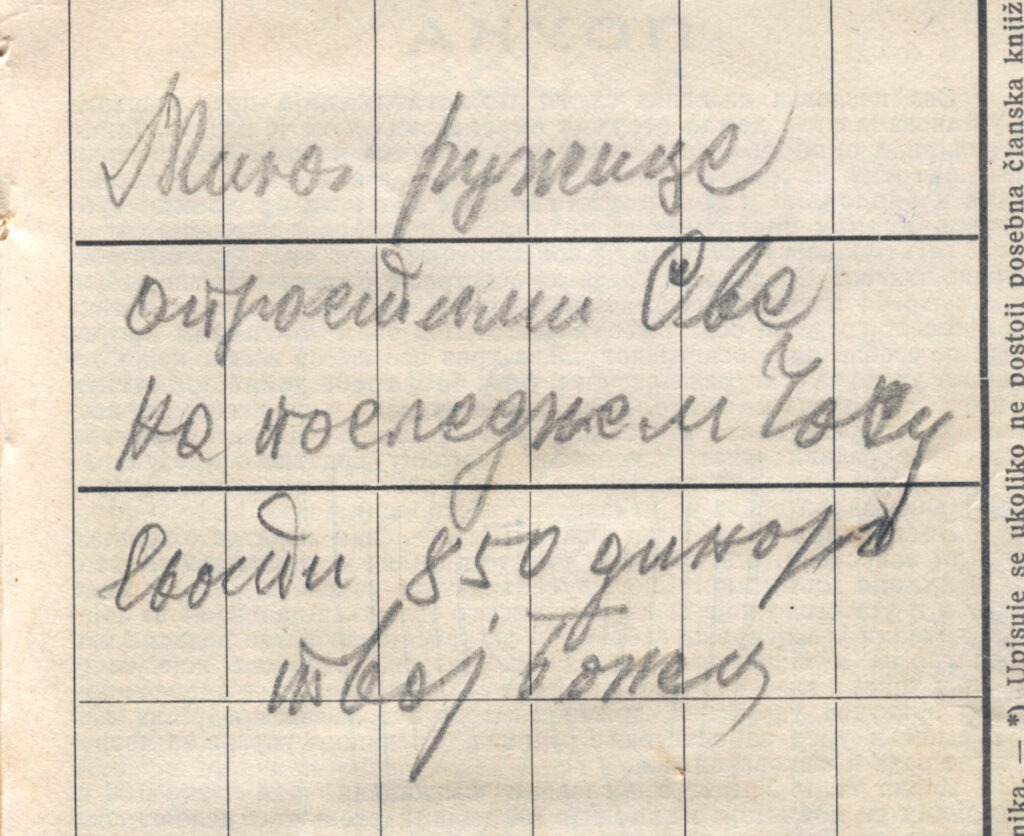 Мила ружице
опростими Све
на последнем Часу
Евоти 850 динара
твој Божа
nika. — *) Upisuje se ukoliko ne postoji posebna članska knjiž